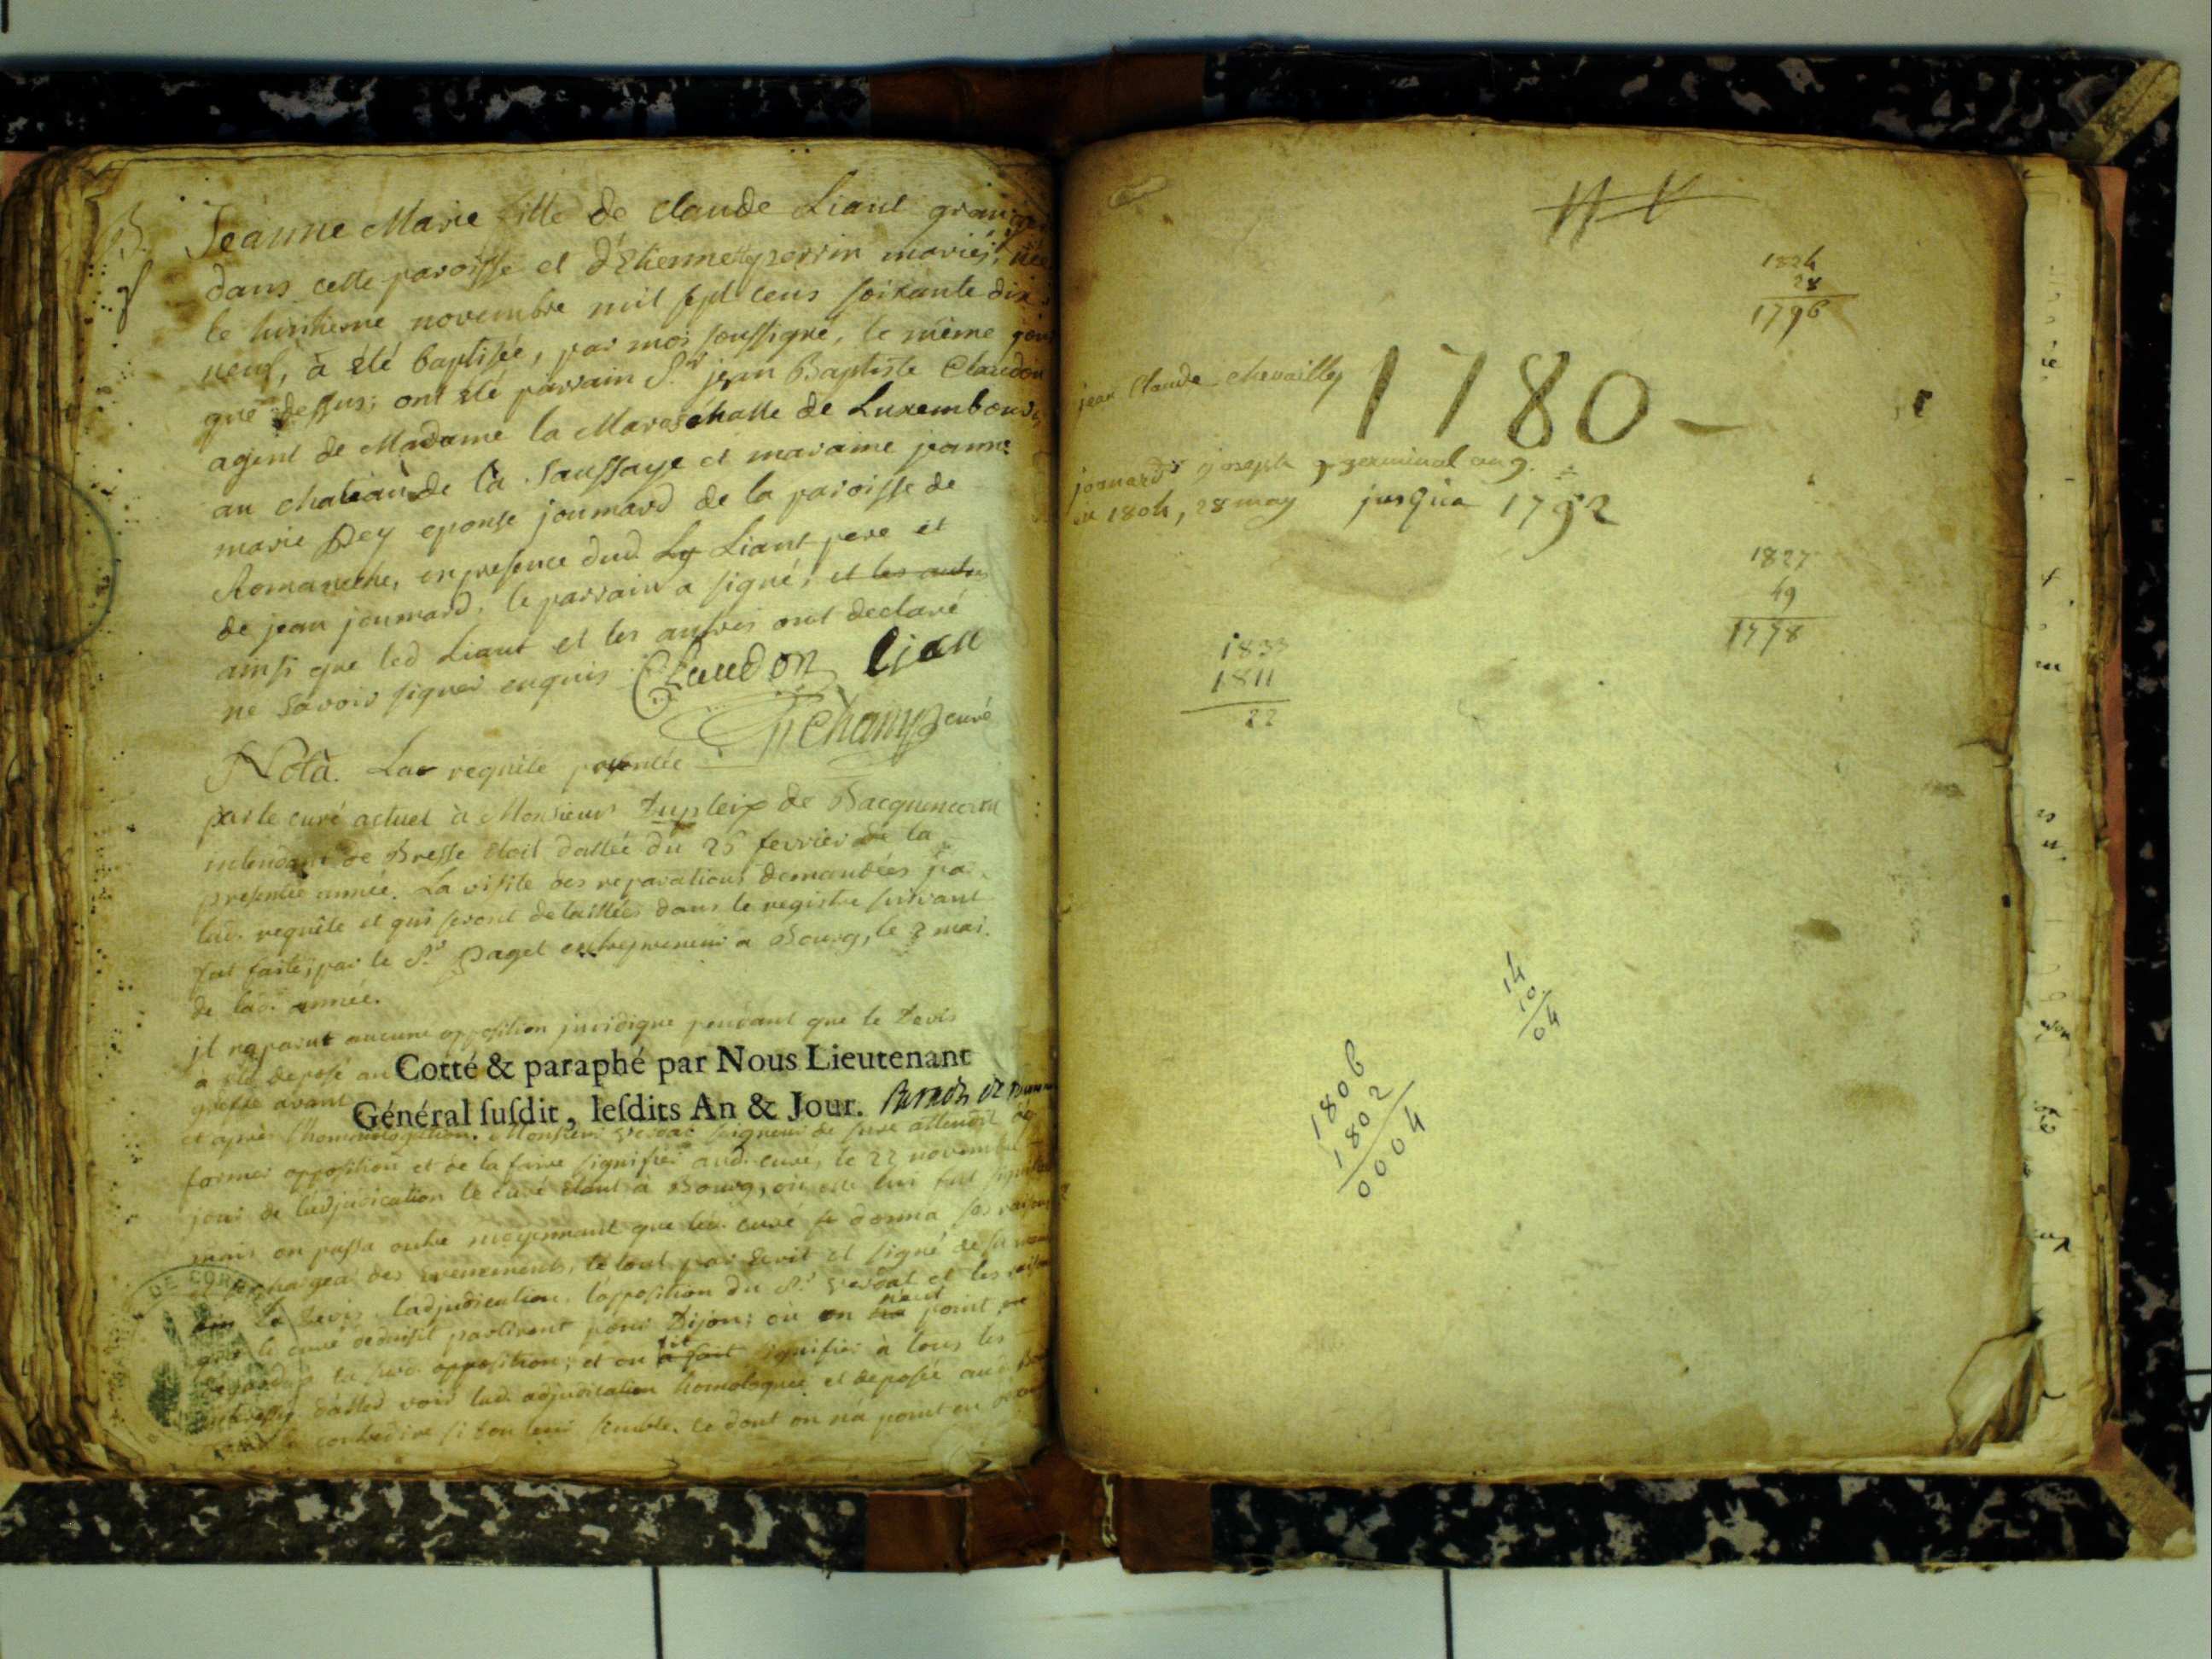 B.
Jeanne Marie fille de Claude Liant granger
dans cette paroisse et d'Etiennette perrin mariés, née
le huitieme novembre mil sept cens soixante dix
neuf, à été baptisée, par moi soussigné, le même jour
que dessus; ont été parrain Sr jean Baptiste Claudon
agent de Madame la Mareschalle de Luxembourg
au chateau de la Saussaye et maraine jeanne
marie Dey epouse joumard de la paroisse de
Romaneche, en presence dud. Ly Liant pere et
de jean joumard, le parrain a signé, et les autres
ainsi que led Liant et les autres ont declaré
ne savoir signer enquis. Claudon lian
curé
Nota. La requête presentée
par le curé actuel à Monsieur Dupleix de Bacquencourt
intendant de Bresse étoit dattée du 25 fevrier de la
presente année. La visite des reparations demandées par
lad. requête et qui seront detaillées dans le registre suivant
fut faite, par le Sr Paget entrepreneur a Bourg, le 2 mai
de lad. année.
il n'a parut aucune opposition juridique pendant que le Devis
a été deposé au
greffe avant
Cotté & paraphé par Nous Lieutenant
Général susdit, lesdits An & Jour.
et après l'homologation. Monsieur seigneur de attendit de
former opposition et de la faire signifier aud. curé, le 22 novembre
jour de l'adjudication le curé étant à Bourg, où elle lui fut signifiée
mais on passa outre moyennant que led. curé donna ses raisons
et se chargea des evenements, le tout par écrit et signé de sa main
le Devis, l'adjudication, l'opposition du Sr et les raisons
que le curé deduisit partirent pour Dijon; où on n'eut point
la susd. opposition; et on fit signifier à tous les
d'aller voir lad. adjudication homologuée et deposée
contredire si bon leur semble. ce dont on n'a point eu
DE COR
1824
28
1796
jean Claude chevailley
1780 -
joumard joseph 7 germinal an 9.
en 1804, 28 may jusqua 1792
1827
49
1778
1833
1811
22
14
10
04
1806
1802
0004